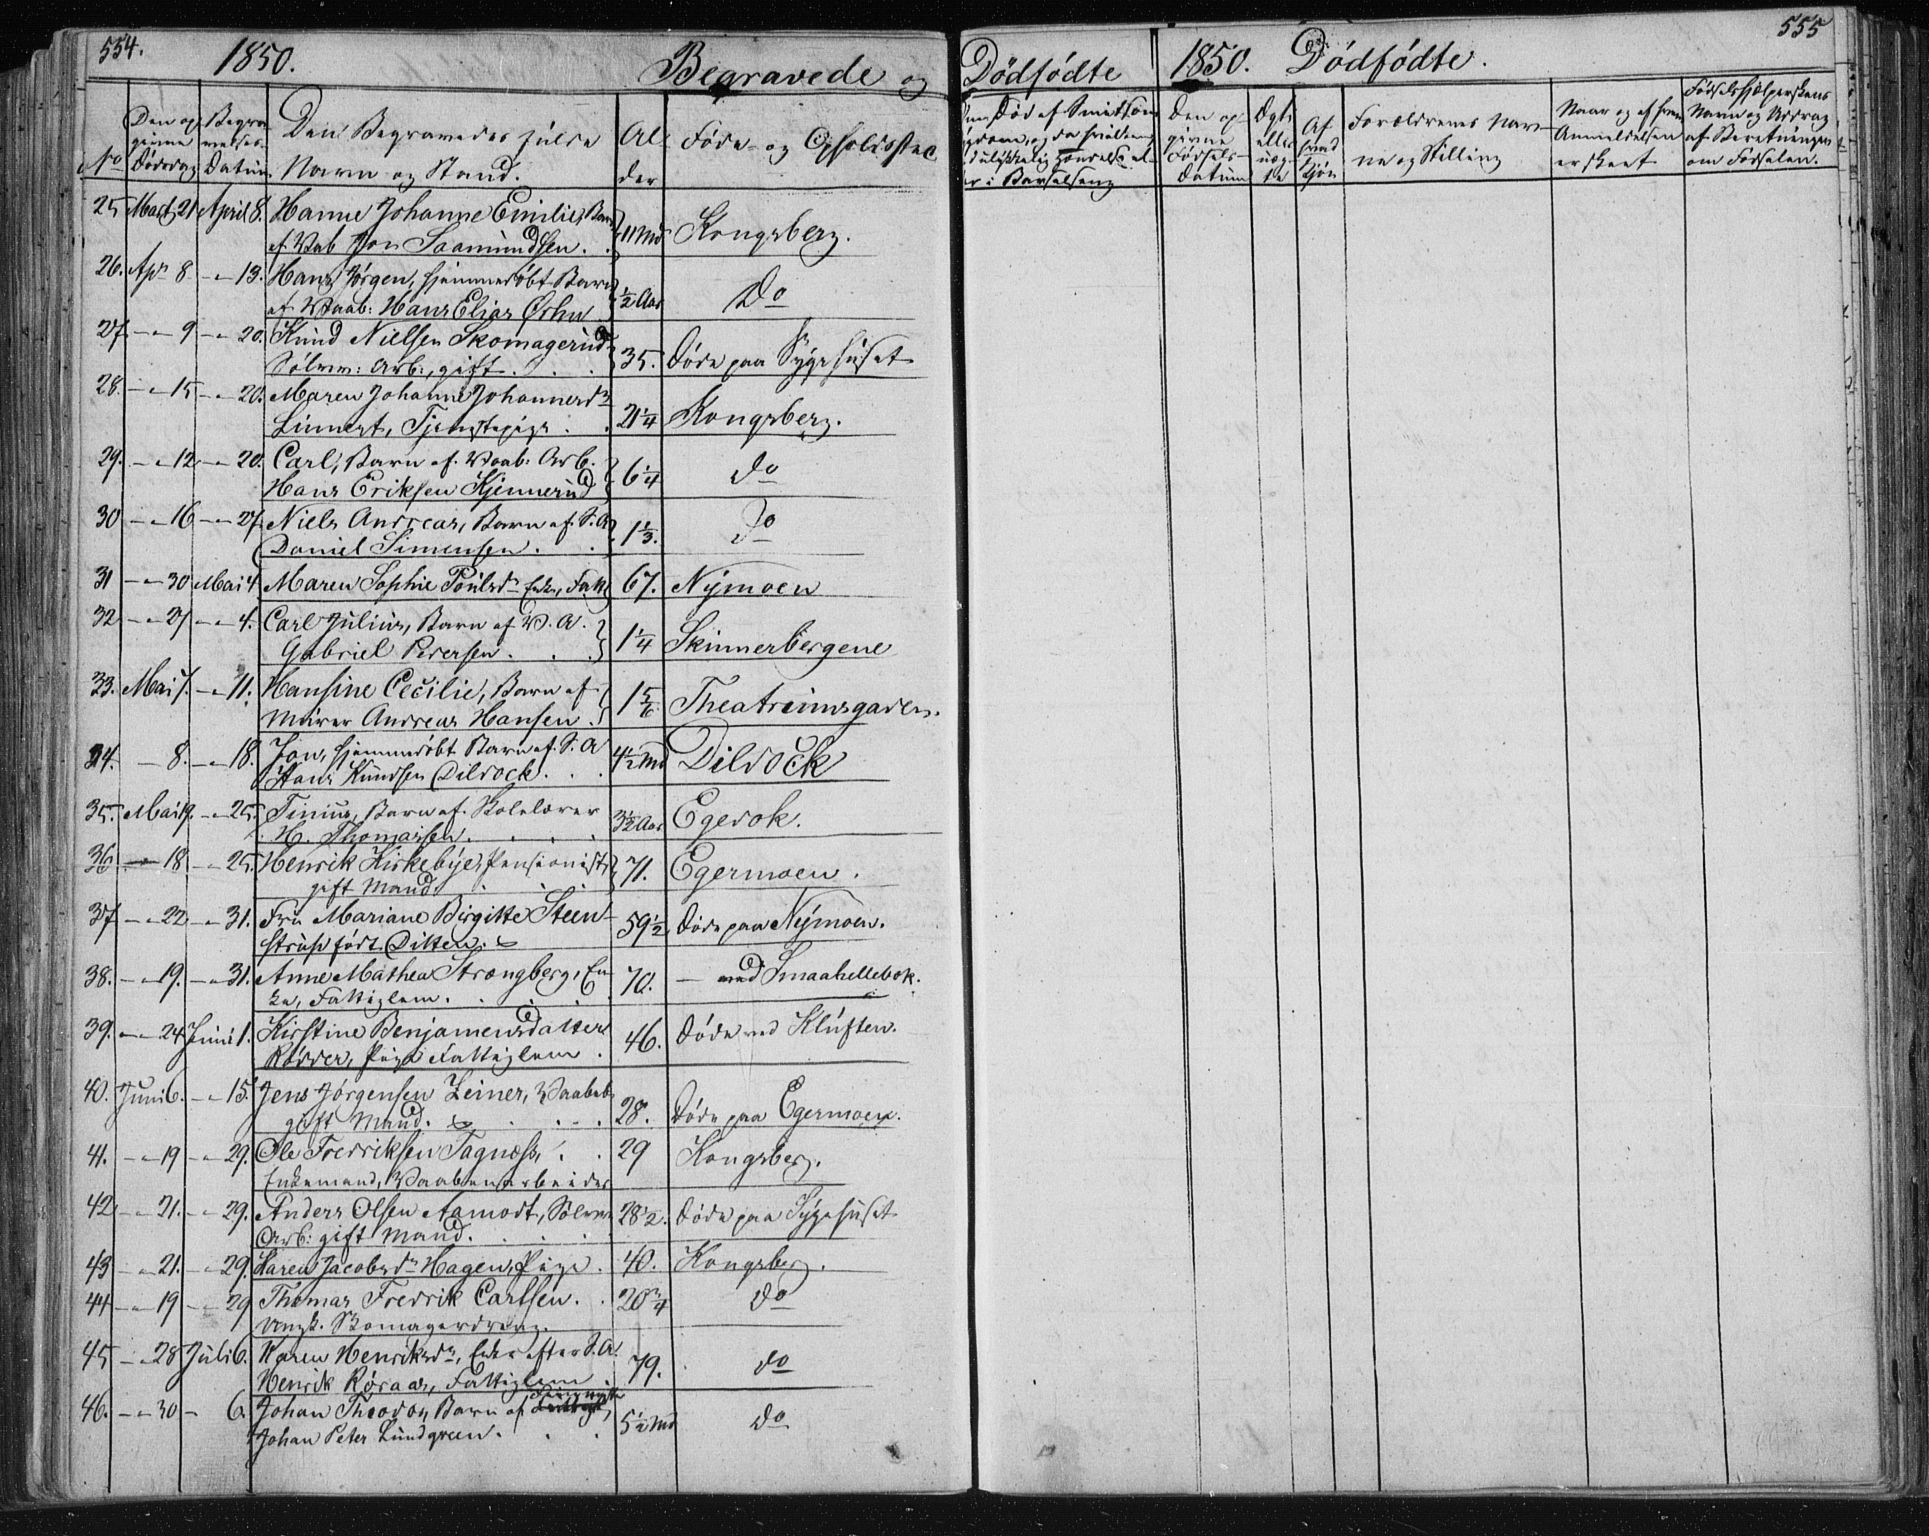 554.
1850.
Begravede og
Den op-
givne
Dødsdag
Begra-
velses-
Datum
No
Den Begravedes fulde
Navn og Stand.
Al-
der
Føde- og Opholdssted
25 Marts 21 April 8. Hanne Johanne Emilie, Barn
af Vaab Jon Saamundsen . 11 Md Kongsberg.
26. Apr 8 - " 13. Hans Jørgen, hjemmedøbt Barn
af Vaab: Hans Elias 1/2 Aar Do
27 - " 9 - " 20. Knud Nielsen Skomagerud
Sølvv: Arb:, gift . . . 35. Døde paa Sygehuset
28. - " 15 - " 20. Maren Johanne Johannesdr
Linnert, Tjenestepige . 21 1/4 Kongsberg.
29. - " 12 - " 20. Carl, Barn af Vaab: Arb.
Hans Eriksen Kjennerud 6 1/4 do
30 - " 16 - " 27. Niels Andreas, Barn af S. A
Daniel Simensen . . 1 1/3. do
31 - " 30 Mai 4. Maren Sophie Poulsdr Enke, Fattl 67. Nymoen
32 - " 27 - " 4. Carl Julius, Barn af V. A.
Gabriel Pedersen . . . 1 1/4 Skinnerbergene
33. Mai 7. - " 11. Hansine Cecilie, Barn af
Murer Andreas Hansen . 1 5/6 Theatreimsgaden.
34. - 8. - " 18. Jon, hjemmedøbt Barn af S. A
Hans Knudsen Dildock . . . 4 1/2 Md Dildock
35. Mai 19. - " 25. Tinius, Barn af Skolelærer
H. Thomassen . . . . 3 1/2 Aar Egedok.
36 - 18 - " 25. Henrik Kirkebye, Pensionist
gift Mand . . . . 71. Egermoen.
37 - " 22 - " 31. Fru Mariane Birgitte Steen-
strup født Ditten. 59 1/2 Døde paa Nymoen.
38. - " 19. - " 31. Anne Mathea Strangberg, En-
ke, Fattiglem. . . . 70. — ved Smaahellebok.
39. - " 24 Juni 1. Kirstine Benjaminsdatter
Rødder, Pige Fattiglem . 46. Døde ved Kluften.
40. Juni 6. - " 15. Jens Jørgensen Leiner, Vaabab
gift Mand. . . . . 28. Døde paa Egermoen.
41. - " 19 - " 29. Ole Fredriksen Tagness, . .
Enkemand, Vaabenarbeider 29 Kongsberg.
42. - " 21. - " 29. Anders Olsen Aamodt, Sølvv
Arb: gift Mand. . . . 28 1/2. Døde paa Sygehuset
43 - " 21. - " 29. Karen Jacobsdr Hagen, Pige . 40. Kongsberg.
44 - " 19 - " 29 Thomas Fredrik Carlsen . .
Skomagerdreng. 20 3/4 do
45 - " 28 Juli 6. Karen Henriksdr, Enke efter S. A.
Henrik Røraas, Fattiglem . 79. do
46. - " 30 - 6. Johan Theodor, Barn af
Johan Peter Lundgreen . . . 5 1/2 Md do
555
Dødfødte
1850. Dødfødte.
Om Død af Smitsom
Sygdom, og da hvilken,
ved ulykkelig Hændelse el-
ler i Barselseng
Den op-
givne
Fødsels-
datum
Ægte
eller
uæg-
te
Af
hvad
Kjøn
Forældrenes Nav-
ne og Stilling
Naar og af hvem
Anmeldelsen
er skeet
Fødselshjælperskens
Navn og Uddrag
af Beretningen
om Fødselen.